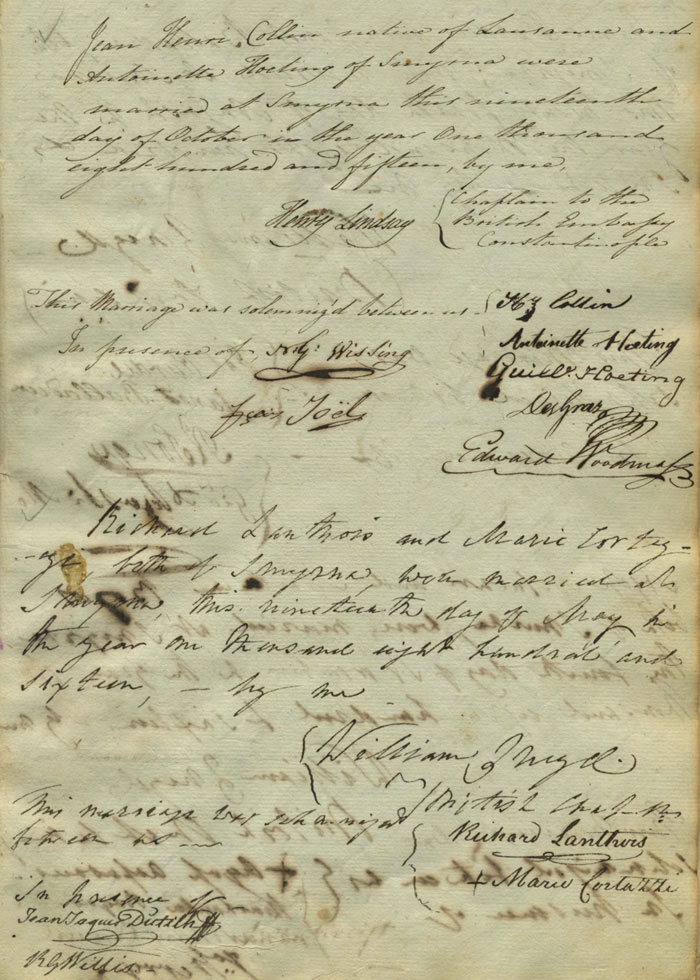 Jean Henri Collin native of Lausanne and
Antoinette Hoeting of Smyrna were
married at Smyrna this nineteenth
day of October in the year One thousand
eight hundred and fifteen, by me,
Henry Lindsay
Chaplain to the
British Embassy
Constantinople
This Marriage was solemniz'd between us
Hy Collin
Antoinette Hoeting
In presence of Wissing
Guilm. Hoeting
DesGraz
Joël
Edward Woodmass
Richard Lanthois and Marie Corteg-
-gi, both of Smyrna, were married at
Smyrna, this nineteenth day of May in
the year one thousand eight hundred and
sixteen, — by me
William
British Chapn
This marriage was solemnized
between us
Richard Lanthois
+ Marie Cortazzi
In presence of
Jean Jaques Dutilh
RG Willis